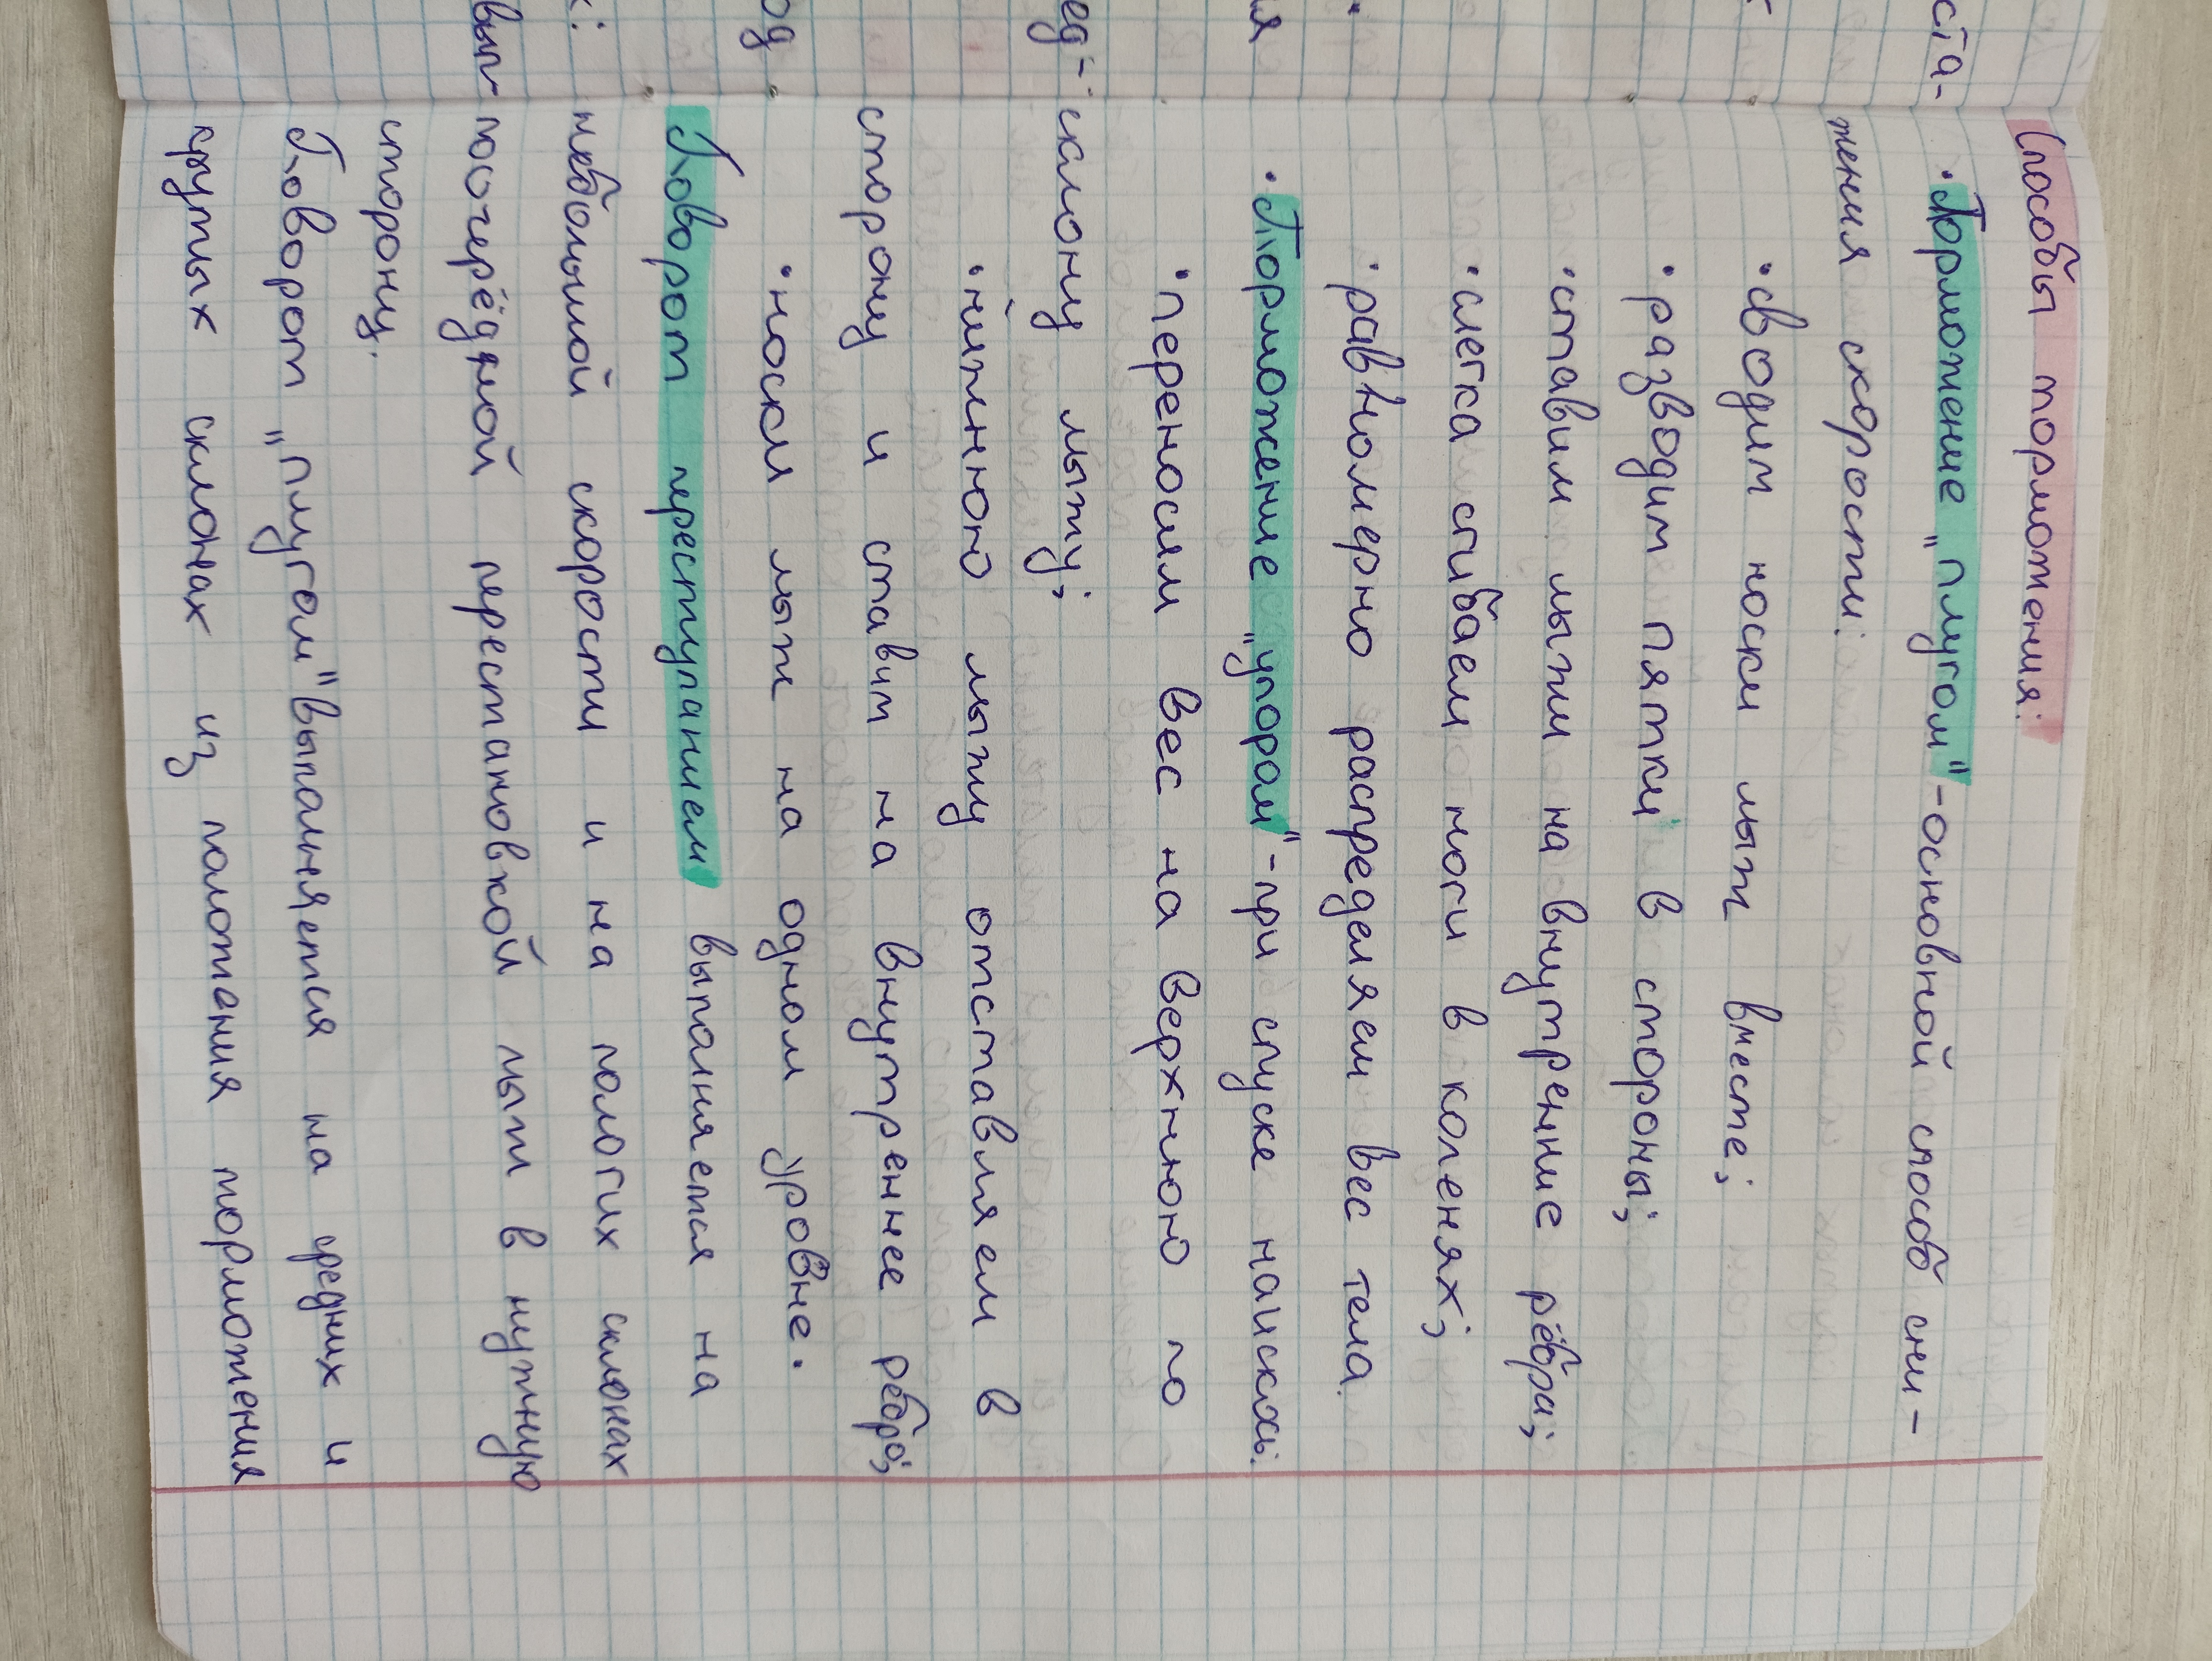 Способы торможения:
• Торможение „плугом" - основной способ сни-
жения скорости:
• сводим носки лыж вместе;
• разводим пятки в стороны;
• ставим лыжи на внутренние рёбра;
• слегка сгибаем ноги в коленях;
• равномерно распределяем вес тела.
• Торможение „упором" - при спуске наискось:
• переносим вес на верхнюю по
склону лыжу;
• нижнюю лыжу отставляем в
сторону и ставим на внутреннее ребро;
• носки лыж на одном уровне.
Поворот переступанием выполняется на
небольшой скорости и на пологих склонах
поочерёдной перестановкой лыж в нужную
сторону.
Поворот „плугом" выполняется на средних и
крутых склонах из положения торможения